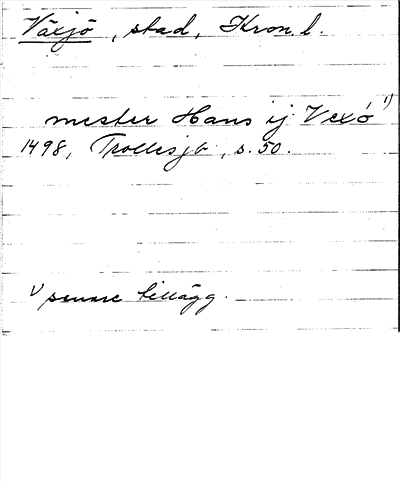 Växjö, stad, Kron. l.
mester Hans ij Vexö 1)
1498, Trollesjb, s. 50.
1) senare tillägg.